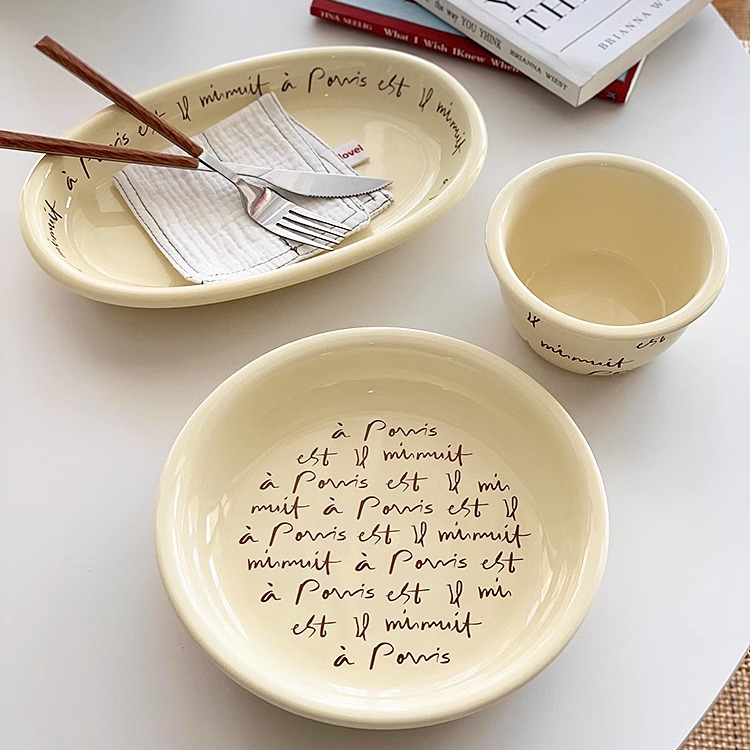 TINA SEELIG What I Wish IKnew When
the way YOU YHINK BRIANNA WIEST
THI
BRIANNA
à Paris est Il minuit à Paris est Il minuit
à Paris
minuit
lovel
Il minuit est
à Paris
est Il minuit
à Paris est Il mi
nuit à Paris est Il
à Paris est Il minuit
minuit à Paris est
à Paris est Il mi
est Il minuit
à Paris